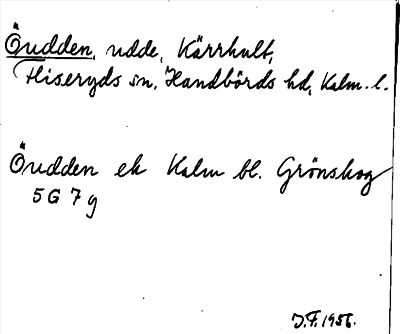 Öudden, udde, Kärrhult,
Hiseryds sn, Handbörds hd, Kalm. l.
Öudden ek Kalm bl. Grönskog
5 G 7 g
J.F. 1956.